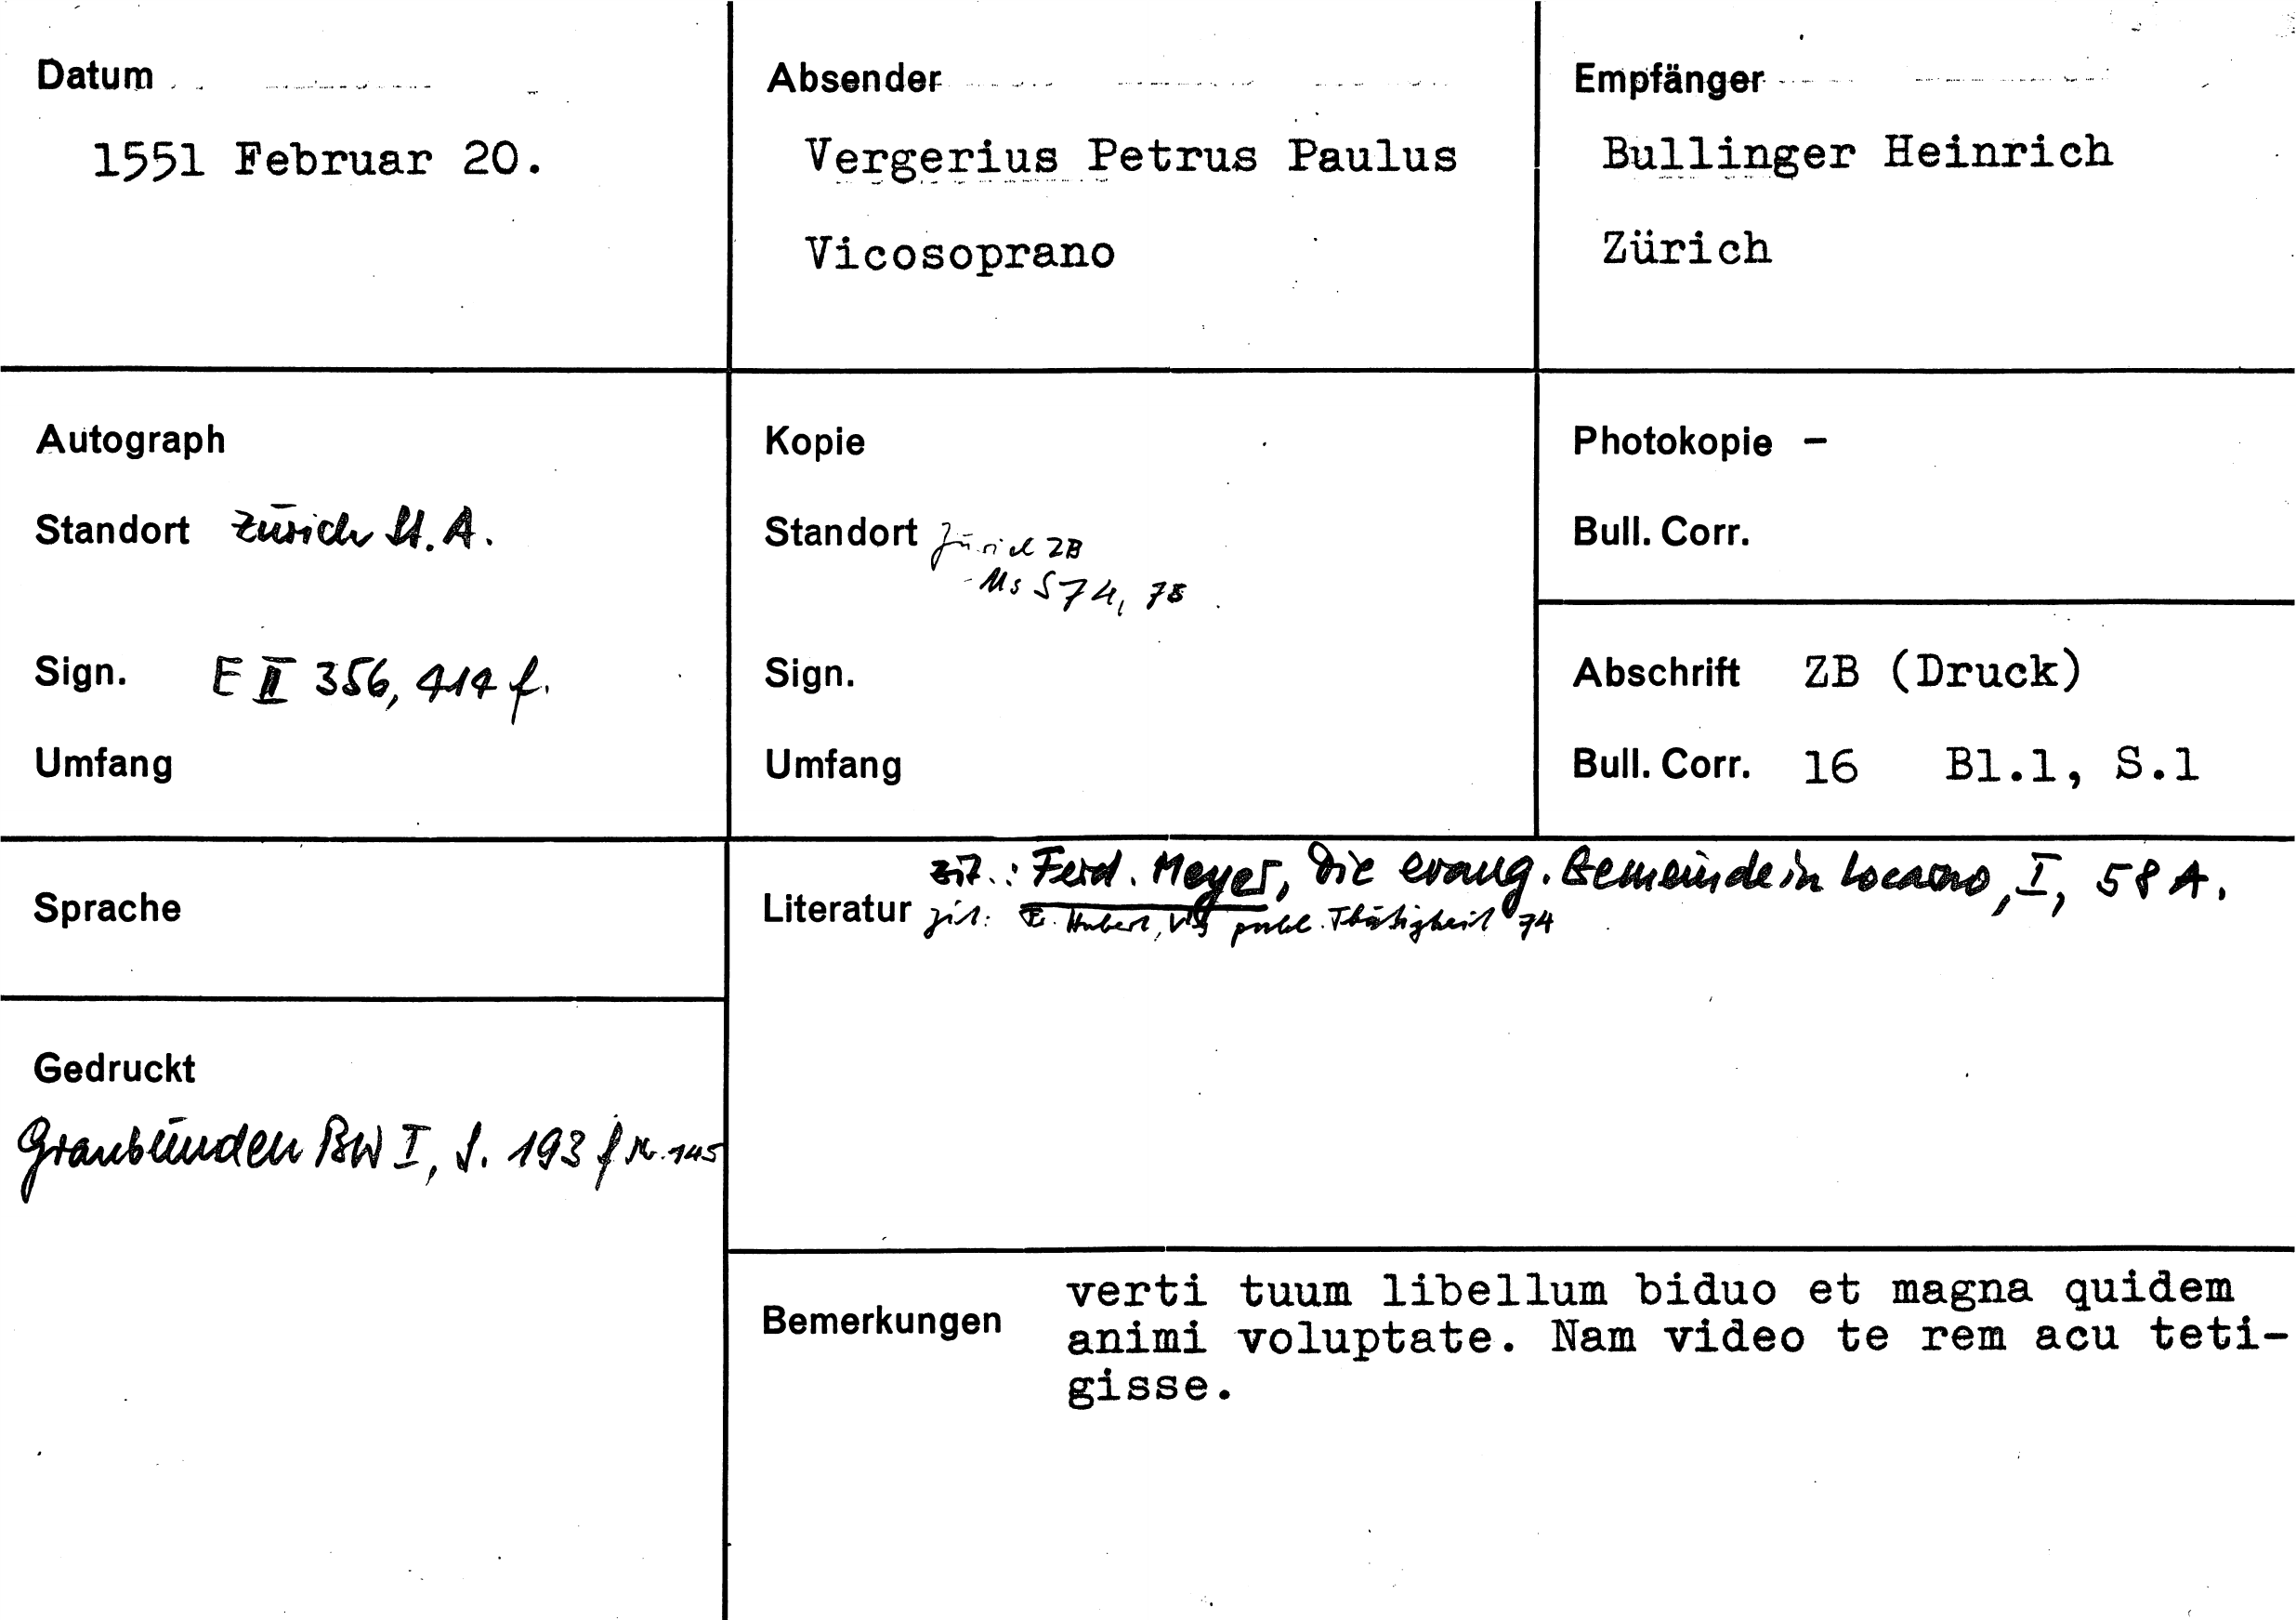 Datum
1551 Februar 20.
Absender
Vergerius Petrus Paulus
Vicosoprano
Empfänger
Bullinger Heinrich
Zürich
Autograph
Standort Zürich St. A.
Sign. E II 356, 414 f.
Umfang
Kopie
Standort Zürich ZB
Ms S 74, 78
Sign.
Umfang
Photokopie -
Bull. Corr.
Abschrift ZB (Druck)
Bull. Corr. 16 Bl.1, S.1
Sprache
Gedruckt
Graubünden BW I, S. 193 f Nr. 145
zit.: Ferd. Meyer, Die evang. Gemeinde in Locarno, I, 58 A.
Literatur zit: Fr. Hubert, publ. Thätigkeit 74
Bemerkungen
verti tuum libellum biduo et magna quidem
animi voluptate. Nam video te rem acu teti-
gisse.